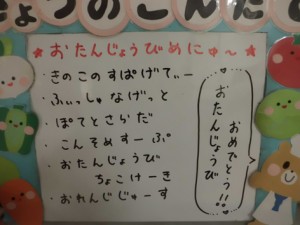 きょうのこんだて
★おたんじょうびめにゅ〜★
・きのこのすぱげてぃー
・ふぃっしゅなげっと
・ぽてとさらだ
・こんそめすーぷ
・おたんじょうび
ちょこけーき
・おれんじじゅーす
おめでとう!!
おたんじょうび